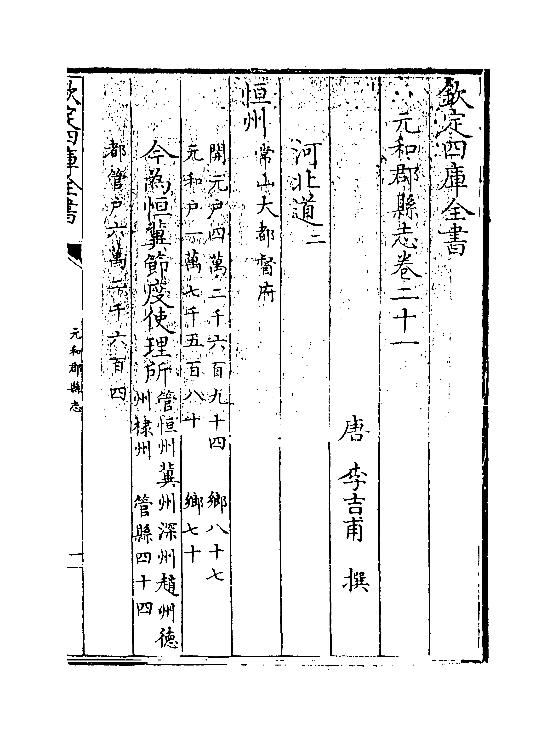 欽定四庫全書
元和郡縣志卷二十一
唐 李吉甫 撰
河北道二
恒州 常山大都督府
開元户四萬二千六百九十四 鄉八十七
元和户一萬七千五百八十 鄉七十
今為恒冀節度使理所 管恒州冀州深州趙州德
州棣州 管縣四十四
都管户六萬六千六百四
欽定四庫全書
元和郡縣志
一